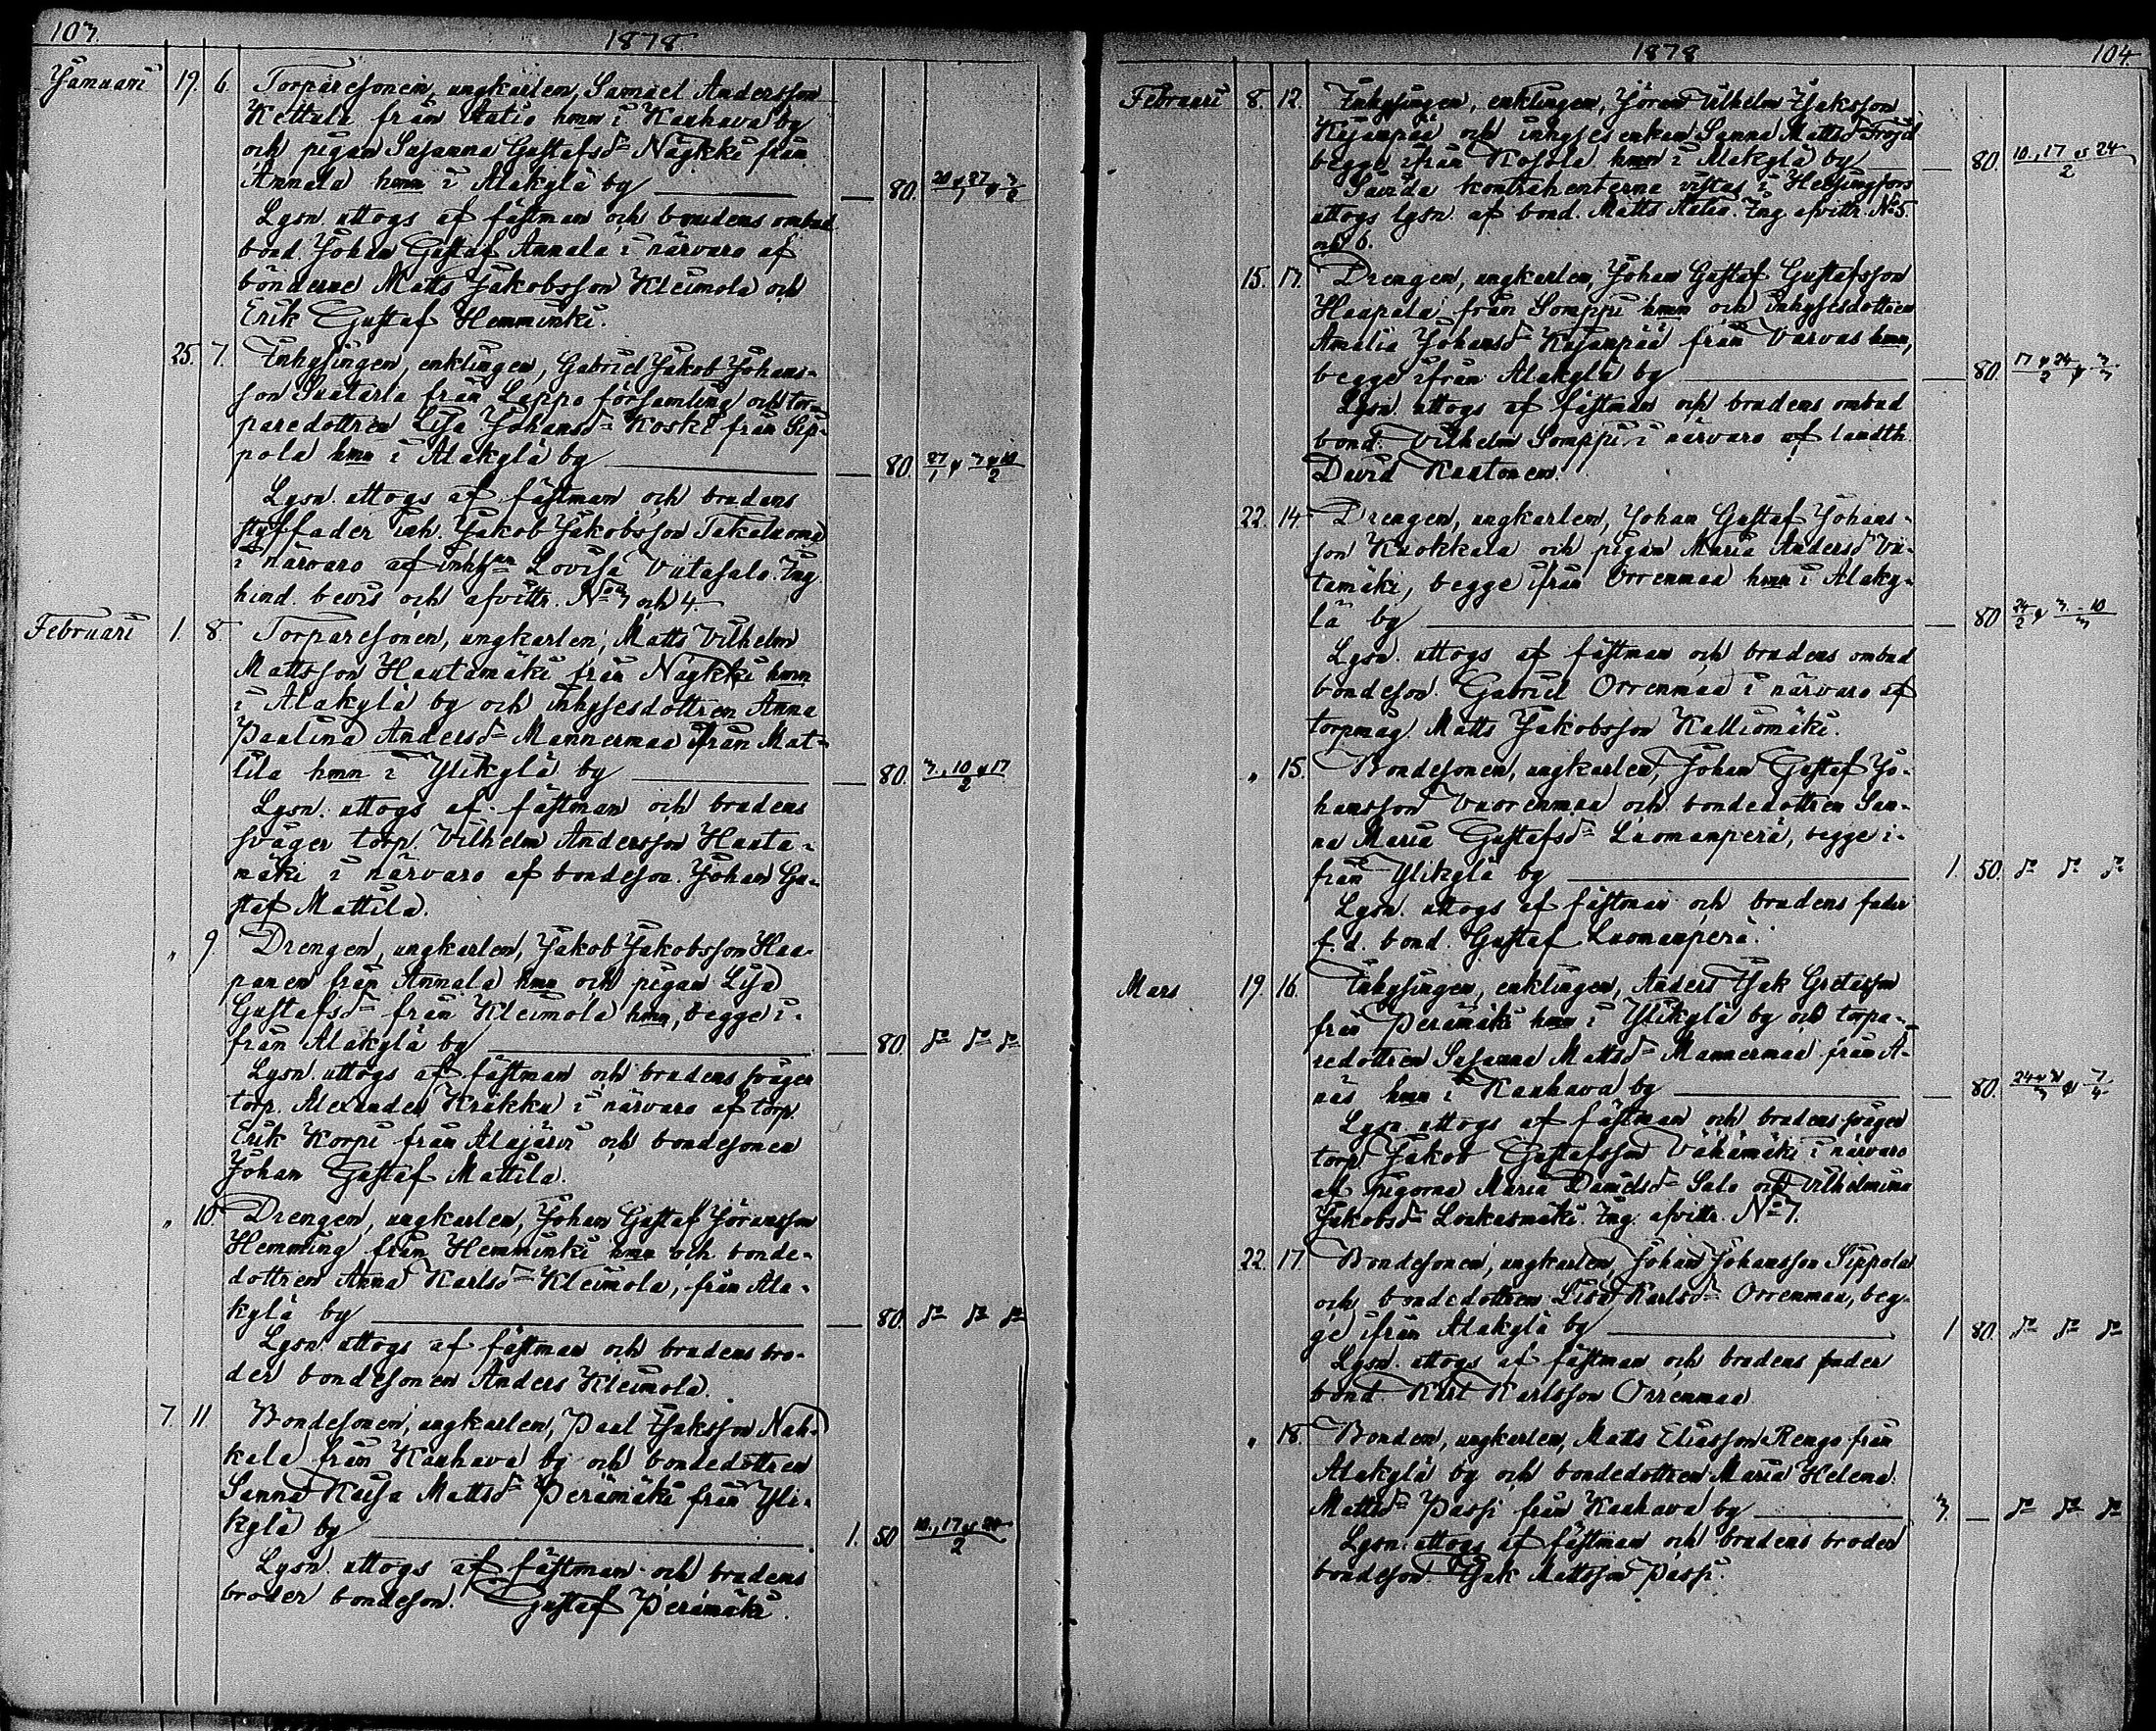 103.
1878
Januari 19. 6. Torparesonen, ungkarlen, Samuel Andersson
Kettula från Aatio hmn i Kauhava by
och pigan Susanna Gustafsd:r Näykki från
Annala hmn i Alakylä by — 80. 20 o 27/1 o 3/2
Lysn. uttogs af fästman och brudens ombud
bond. Johan Gustaf Annala i närvaro af
bönderne Matts Jakobsson Kleimola och
Erik Gustaf Hemminki.
25. 7. Inhysingen, enklingen, Gabriel Jakob Johans-
son Saatarla från Lappo församling och tor-
paredottren Lisa Johansd:r Koski från Sip-
pola hmn i Alakylä by — 80. 27/1 o 3 o 10/2
Lysn. uttogs af fästman och brudens
styffader inh. Jakob Jakobsson Takaluoma
i närvaro af inhys:an Lovisa Viitasalo. Ing.
hind. bevis och afvittr. No 3 och 4.
Februari 1. 8. Torparesonen, ungkarlen, Matts Vilhelm
Mattsson Hautamäki från Näykki hmn
i Alakylä by och inhysesdottren Anna
Paulina Andersd:r Mannermaa ifrån Mat-
tila hmn i Ylikylä by — 80. 3., 10 o 17/2
Lysn. uttogs af fästman och brudens
svåger torp. Vilhelm Andersson Hauta-
mäki i närvaro af bondeson. Johan Gu-
staf Mattila.
" 9. Drengen, ungkarlen, Jakob Jakobsson Haa-
panen från Annala hmn och pigan Lisa
Gustafsd:r från Kleimola hmn, begge i-
från Alakylä by — 80. d:o d:o d:o
Lysn. uttogs af fästman och brudens svåger
torp. Alexander Kräkku i närvaro af torp.
Erik Korpi från Alajärvi och bondesonen
Johan Gustaf Mattila.
" 10. Drengen, ungkarlen, Johan Gustaf Göransson
Hemming från Hemminki hmn och bonde-
dottren Anna Karlsd:r Kleimola, från Ala-
kylä by — 80. d:o d:o d:o
Lysn. uttogs af fästman och brudens bro-
der bondesonen Anders Kleimola.
7. 11. Bondesonen, ungkarlen, Paul Isaksson Nah-
kala från Kauhava by och bondedottren
Sanna Kaisa Mattsd:r Perämäki från Yli-
kylä by 1. 50 10., 17 o 24/2
Lysn. uttogs af fästman och brudens
broder bondeson. Gustaf Perämäki.
1878
104.
Februari 8. 12. Inhysingen, enklingen, Göran Vilhelm Isaksson
Kujanpää och inhyses enkan Sanna Mattsd:r Fröjd
begge ifrån Kosola hmn i Alakylä by — 80. 10., 17 o 24/2
Såvida kontrahenterna vistas i Helsingfors
uttogs lysn. af bond. Matts Aatio. Ing. afvittr. No 5.
och 6.
15. 13. Drengen, ungkarlen, Johan Gustaf Gustafsson
Haapala från Somppi hmn och inhysesdottren
Amalia Johansd:r Kujanpää från Varvas hmn,
begge ifrån Alakylä by — 80. 17 o 24/2 o 3/3
Lysn. uttogs af fästman och brudens ombud
bond. Vilhelm Somppi i närvaro af landth.
David Kautonen.
22. 14. Drengen, ungkarlen, Johan Gustaf Johans-
son Kuokkala och pigan Maria Andersd:r Vii-
tamäki, begge ifrån Orrenmaa hmn i Alaky-
lä by — 80 24/2 o 3 - 10/3
Lysn. uttogs af fästman och brudens ombud
bondeson. Gabriel Orrenmaa i närvaro af
torpmåg Matts Jakobsson Kalliomäki.
" 15. Bondesonen, ungkarlen, Johan Gustaf Jo-
hansson Vuorenmaa och bondedottren San-
na Maria Gustafsd:r Luomanperä, begge i-
från Ylikylä by 1. 50. d:o d:o d:o
Lysn. uttogs af fästman och brudens fader
f. d. bond. Gustaf Luomanperä.
Mars 19. 16. Inhysingen, enklingen, Anders Isak Gretasson
från Perämäki hmn i Ylikylä by och torpa-
redottren Susanna Mattsd:r Mannermaa från Å-
näs hmn i Kauhava by — 80. 24 o 31/3 o 7/4
Lysn. uttogs af fästman och brudens svåger
torp. Jakob Gustafsson Vähämäki i närvaro
af pigorna Maria Danielsd:r Salo och Vilhelmina
Jakobsd:r Loukasmäki. Ing. afvittr. No 7.
22. 17. Bondesonen, ungkarlen, Johan Johansson Sippola
och bondedottren Lisa Karlsd:r Orrenmaa, beg-
ge ifrån Alakylä by 1 80. d:o d:o d:o
Lysn. uttogs af fästman och brudens fader
bond. Karl Karlsson Orrenmaa.
" 18. Bonden, ungkarlen, Matts Eliasson Rengo från
Alakylä by och bondedottren Maria Helena
Mattsd:r Passi från Kauhava by 3. — d:o d:o d:o
Lysn. uttogs af fästman och brudens broder
bondeson Isak Mattsson Passi.